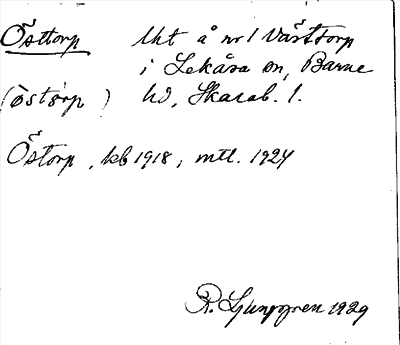 Östtorp lht å nr 1 Västtorp
i Lekåsa sn, Barne
(östorp) hd, Skarab. l.
Östorp, kb 1918, mtl. 1924
R. Ljunggren 1929